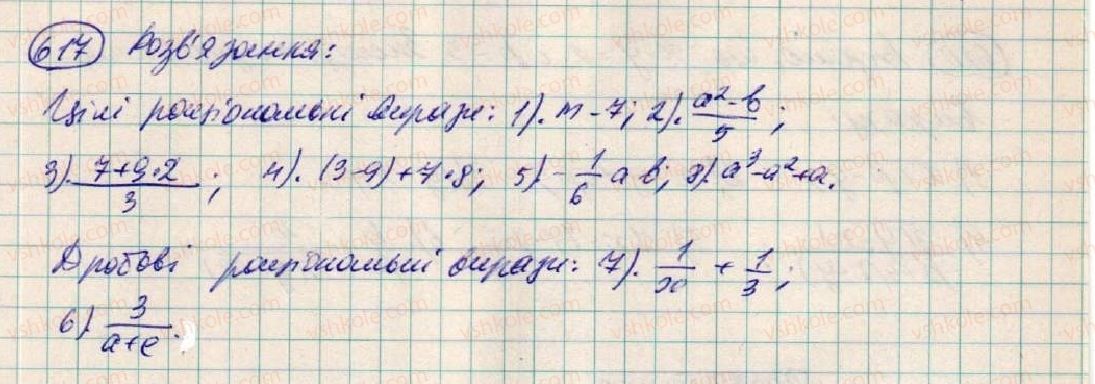 617 Розв'язання:
Цілі раціональні вирази: 1). m - 7; 2). (a² - b)/5;
3). (7+9·2)/3; 4). (3-9)+7·8; 5) -1/6 a b; 8). a³-a²+a.
Дробові раціональні вирази: 7). 1/x + 1/3;
6) 3/(a+c).